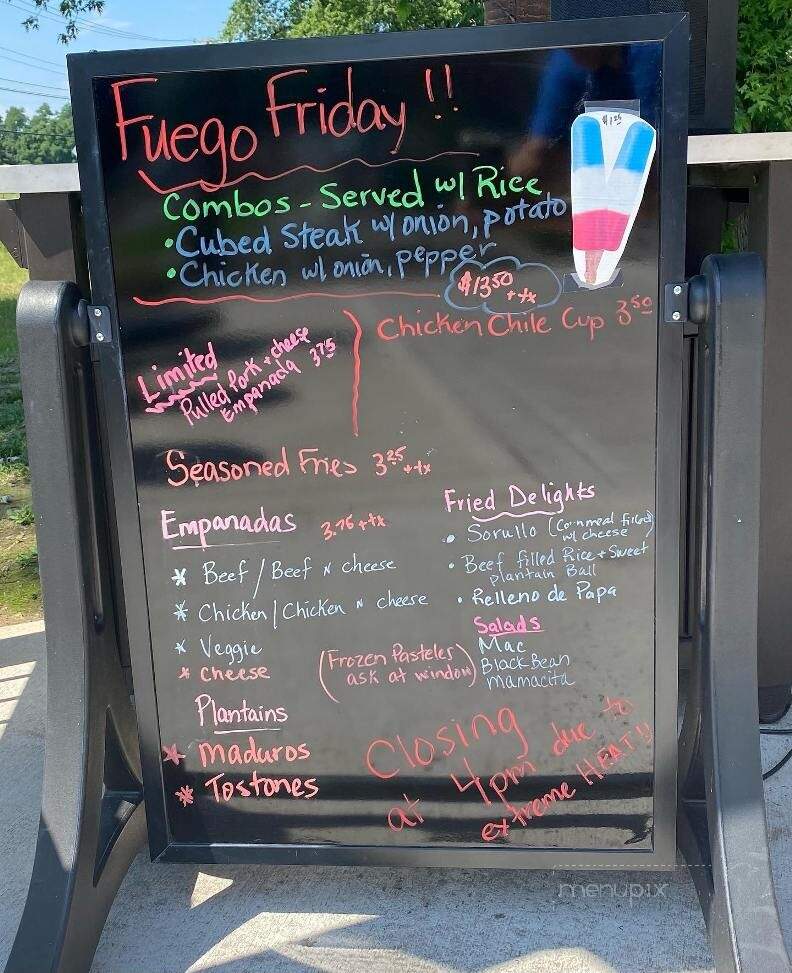 Fuego Friday !!
$1.25
Combos - Served w/ Rice
• Cubed Steak w/ onion, potato
• Chicken w/ onion, pepper
$13.50 ++x
Limited
Pulled Pork + cheese
Empanada 3.75
Chicken Chile Cup 3.50
Seasoned Fries 3.25 ++x
Empanadas 3.75 ++x
* Beef / Beef n cheese
* Chicken / Chicken n cheese
* Veggie
* Cheese
Plantains
* Maduros
* Tostones
Fried Delights
• Sorullo (Cornmeal filled
w/ cheese)
• Beef filled Rice + Sweet
plantain Ball
• Relleno de Papa
Salads
Mac
Black Bean
mamacita
(Frozen Pasteles
ask at window)
Closing
at 4pm due to
extreme HEAT!!
menupix